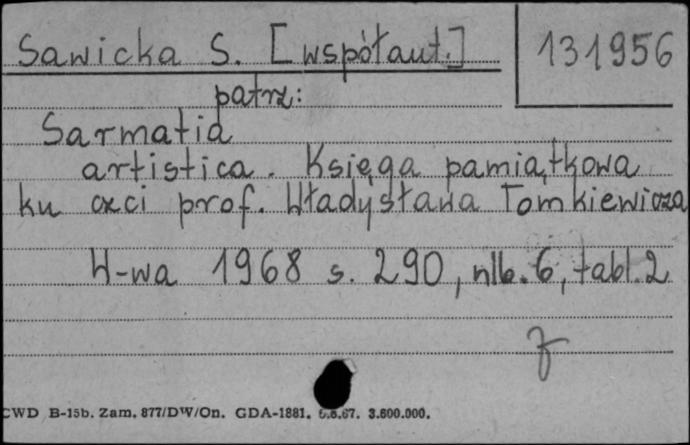 Sawicka S. [współaut.]
131956
patrz:
Sarmatia
artistica. Księga pamiątkowa
ku czci prof. Władysława Tomkiewicza
W-wa 1968 s. 290, nlb. 6, tabl. 2
CWD B-15b. Zam. 877/DW/On. GDA-1881. 6.6.67. 3.600.000.